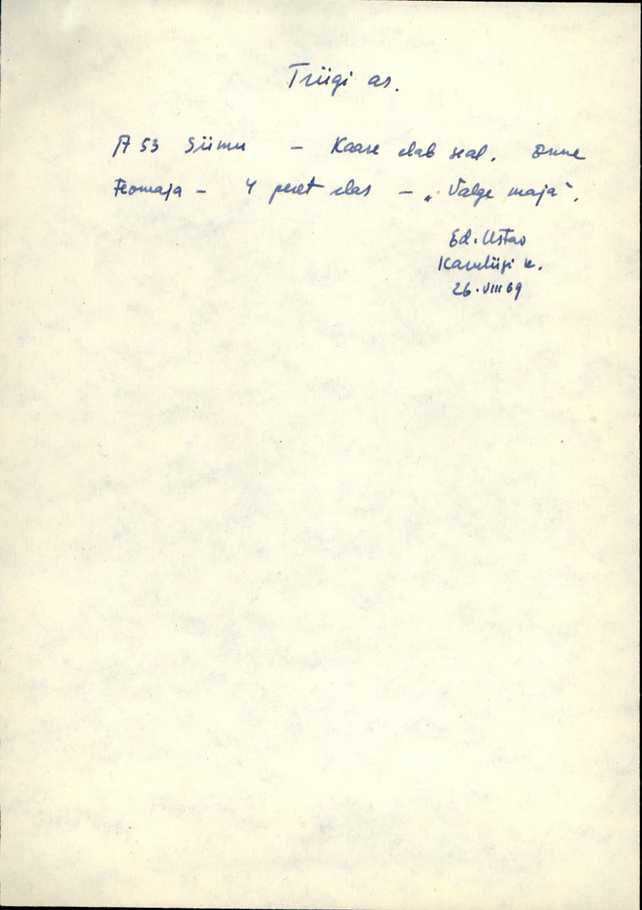 Triigi as.
A 53 Siimu – Kaare elab seal. Enne
Teomaja – 4 peret elas – „Valge maja".
Ed. Ustav
k.
26. VIII 69